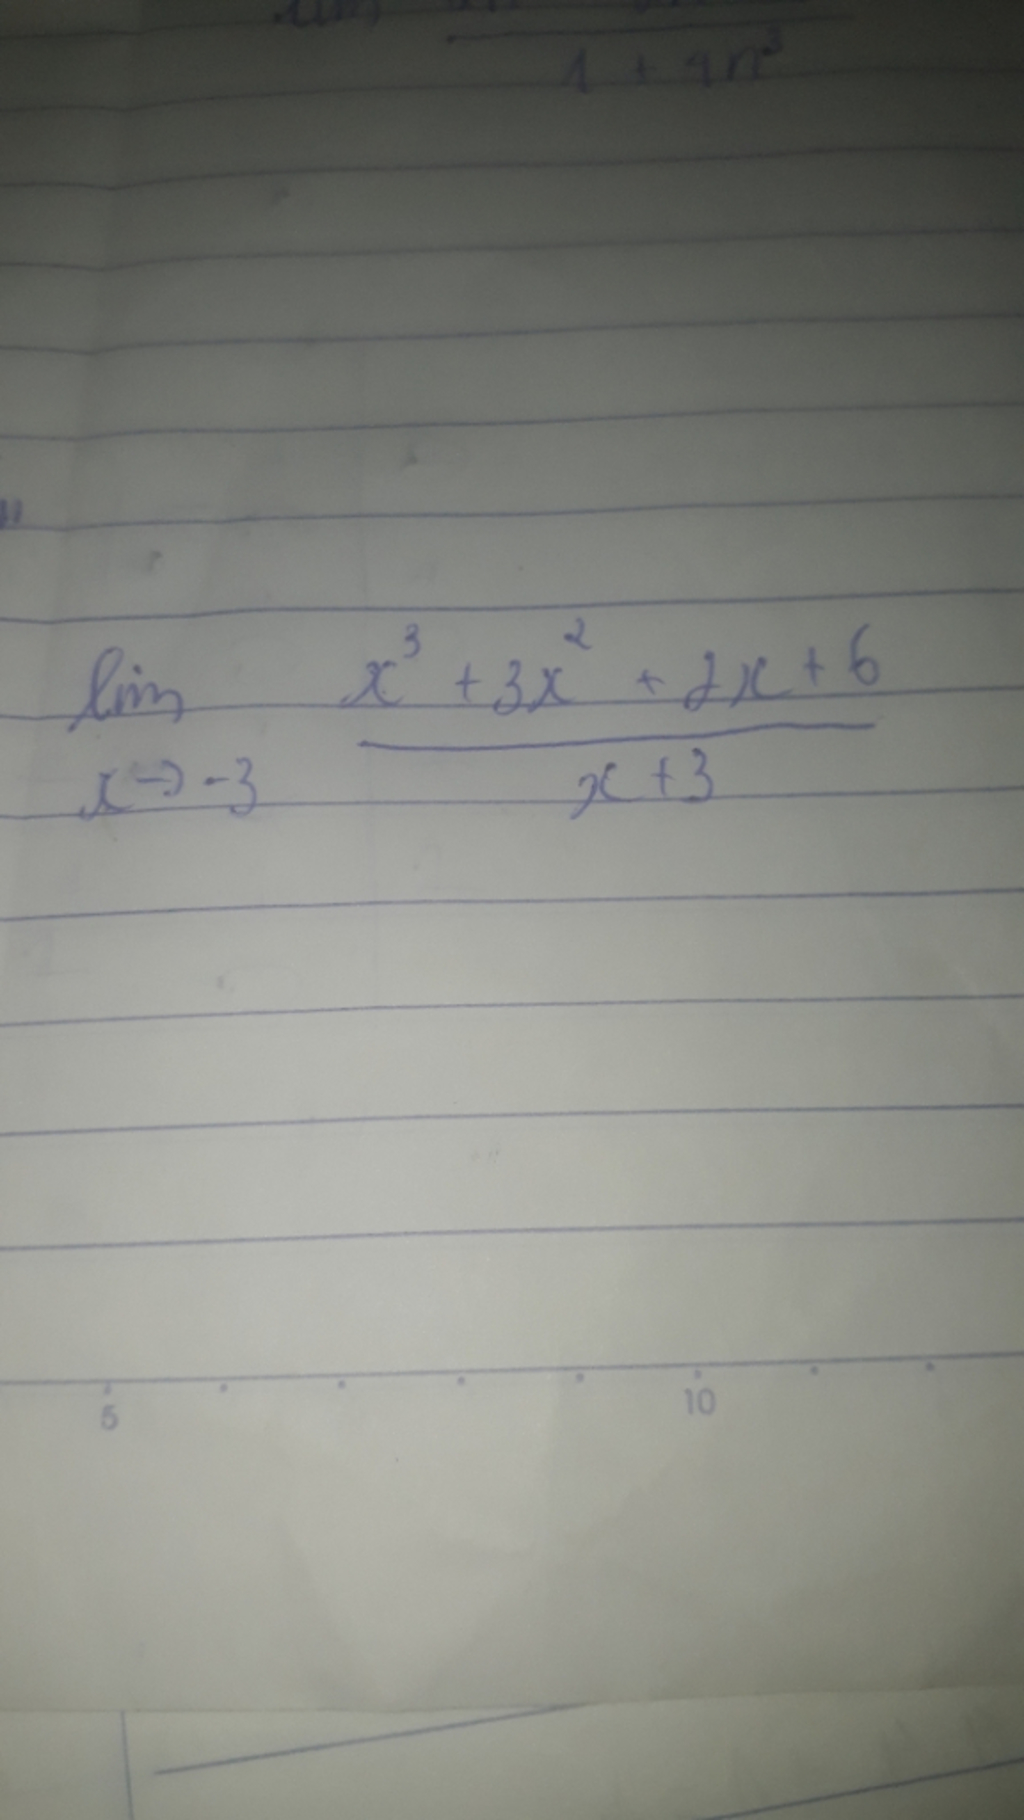 1 + 4n³
lim x³ + 3x² + 2x + 6
x → -3 x + 3
5 10